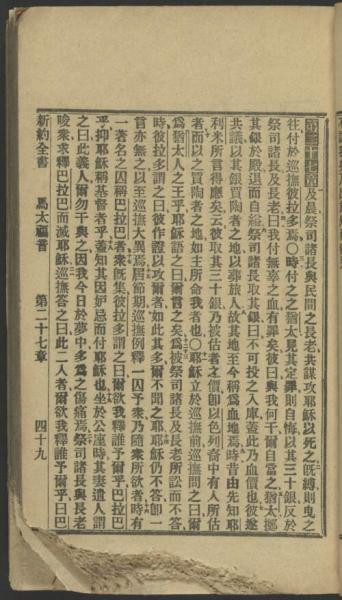 及晨祭司諸長與民間之長老共謀攻耶穌以死之旣縛則曳之
往付於巡撫彼拉多焉〇時付之之猶太見其定罪則自悔以其三十銀反於
祭司諸長及長老曰我付無辜之血有罪矣彼曰與我何干爾自當之猶太擲
其銀於殿退而自縊祭司諸長取其銀曰不可投之入庫蓋此乃血價也彼遂
共議以其銀買陶者之地以葬旅人故其地至今稱爲血地焉時昔由先知耶
利米所言得應矣云彼取其三十銀乃被估者之價卽以色列裔中有人所估
者而以之買陶者之地如主所命我者也〇耶穌立於巡撫前巡撫問之曰爾
爲猶太人之王乎耶穌語之曰爾言之矣爲被祭司諸長及長老所訟而不答
時彼拉多謂之曰彼作證以攻爾者如此其多爾不聞之耶耶穌仍不答卽一
言亦無之以至巡撫大異焉屆節期巡撫例釋一囚予衆乃隨衆所欲者時有
一著名之囚稱巴拉巴者衆旣集彼拉多謂之曰爾欲我釋誰予爾乎巴拉巴
乎抑耶穌稱基督者乎蓋知其因妒忌而付耶穌也坐於公座時其妻遣人謂
之曰此義人爾勿干與之因我今日於夢中多爲之傷痛焉祭司諸長與長老
唆衆求釋巴拉巴而滅耶穌巡撫答之曰此二人者爾欲我釋誰予爾乎曰巴
新約全書 馬太福音 第二十七章 四十九